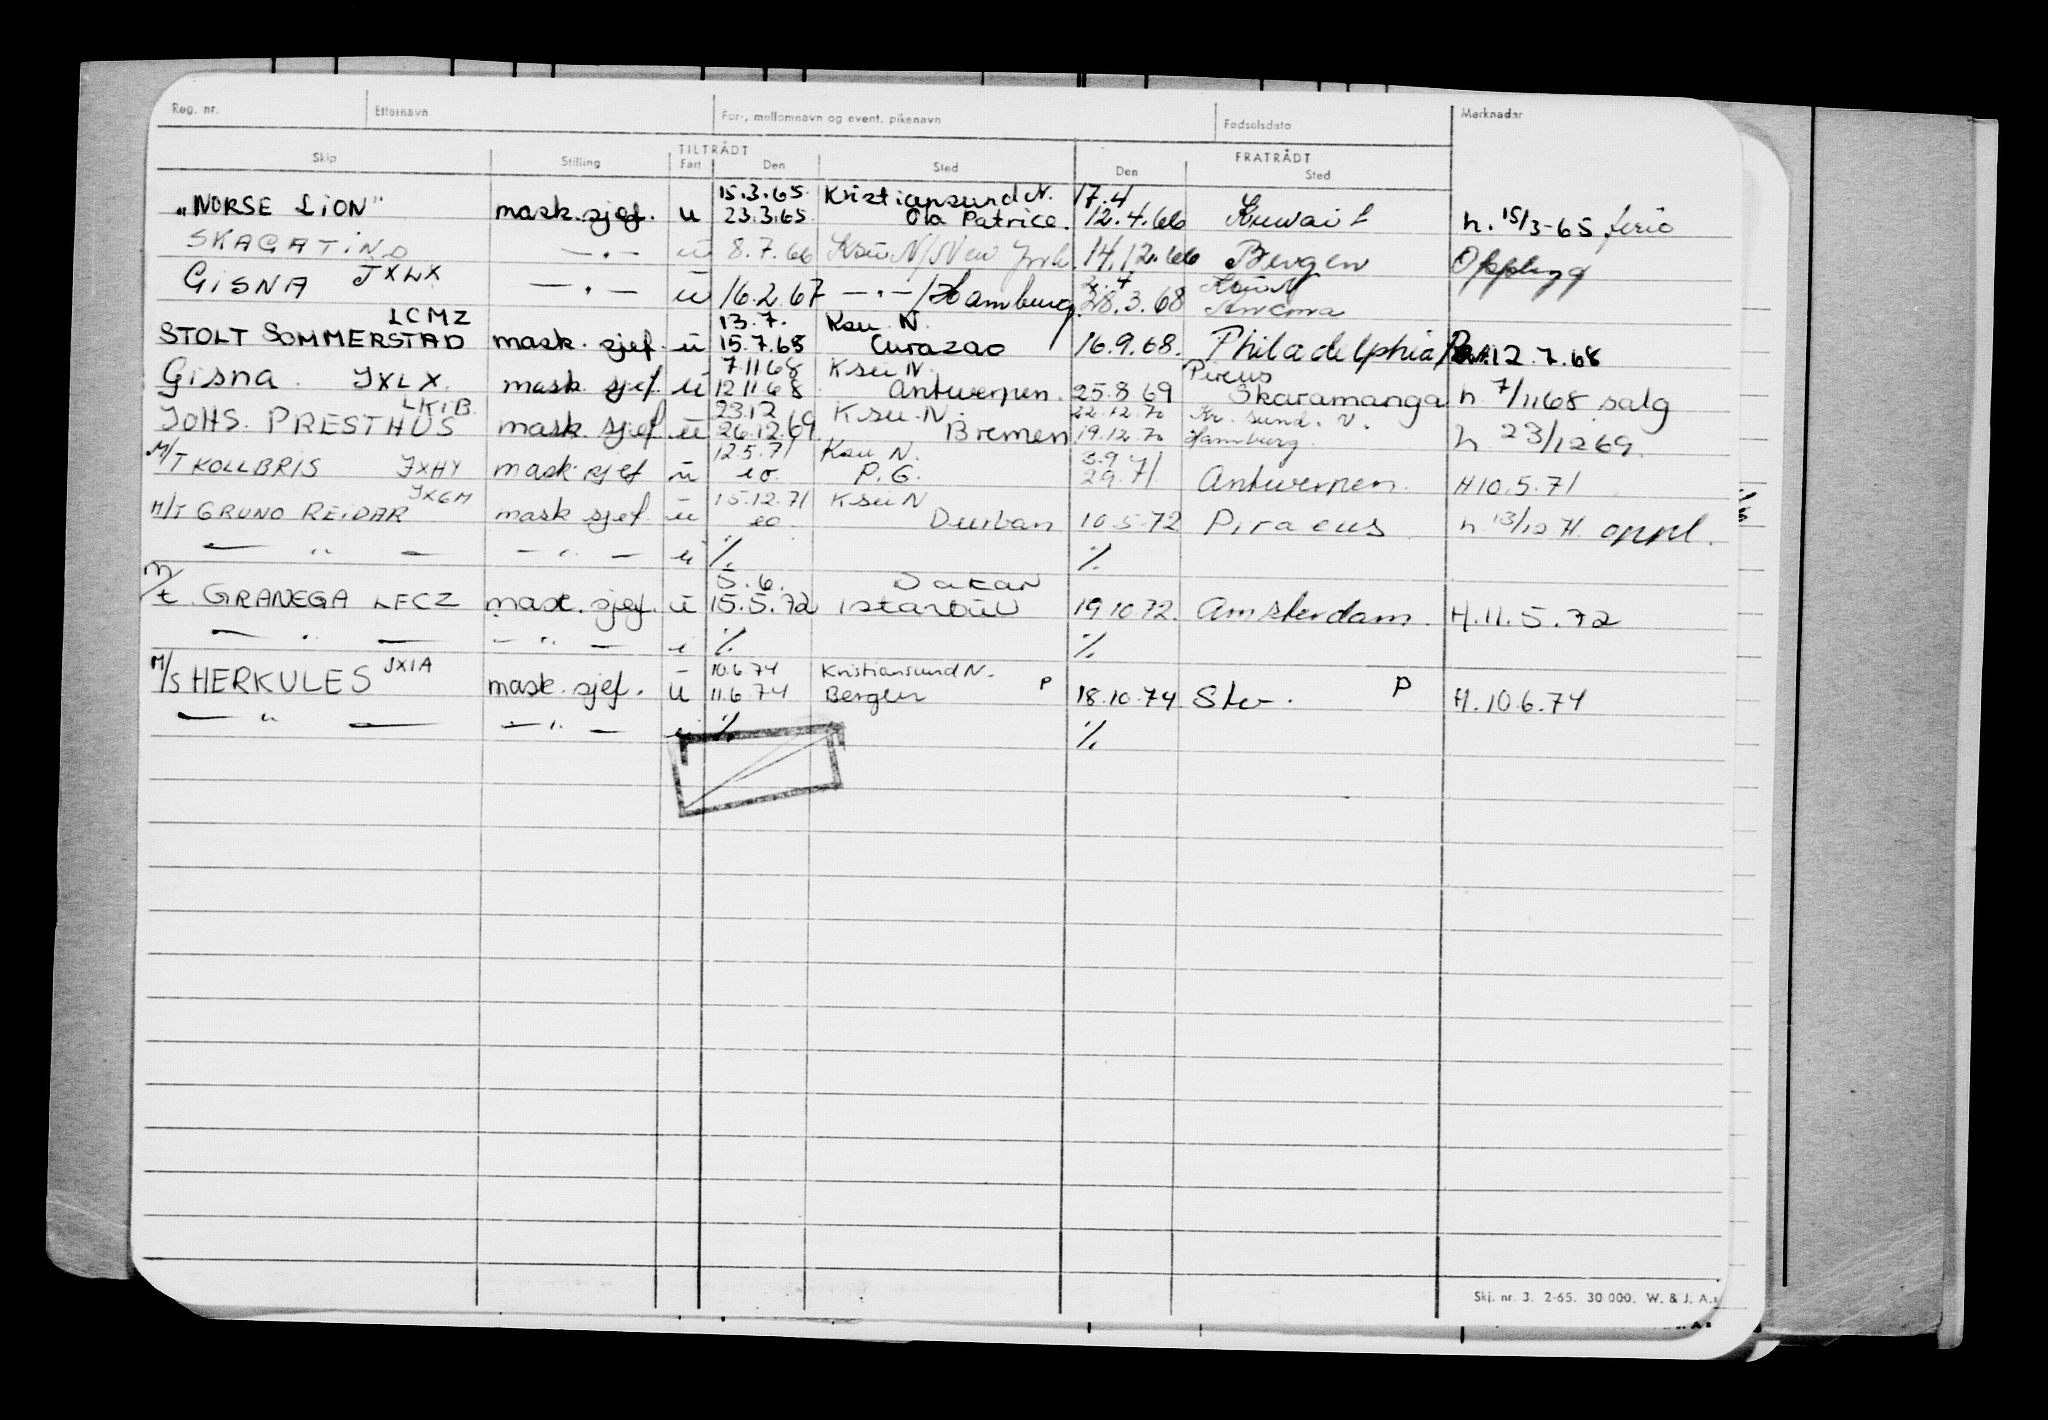 Reg. nr. Etternavn For-, mellomnavn og event. pikenavn Fødselsdato Merknader
TILTRÅDT FRATRÅDT
Skip Stilling Fart Den Sted Den Sted
15.3.65. Kristiansund N. 17.4
"NORSE LiON" mask.sjef. u 23.3.65. Ola Patrice. 12.4.66 Kuwait h. 15/3-65 ferie
SKAGATIND —"— u 8.7.66 Ksu N/New York. 14.12.66 Bergen Opplegg
GISNA JXLX —"— u 16.2.67 —"—/Hamburg. 2.4 28.3.68 Ksu N Ancona
LCMZ 13.7. Ksu. N.
STOLT SOMMERSTAD mask. sjef. u 15.7.68 Curazao 16.9.68. Philadelphia 12.7.68
7.11.68 Ksu N. Pireus
Gisna. JXLX. mask. sjef. u 12.11.68 Antwerpen. 25.8.69 Skaramanga h. 7/11.68 salg
LKIB. 23.12 Ksu. N. 22.12.70 Kr. sund. N.
JOHS. PRESTHUS mask. sjef. u 26.12.69. Bremen 19.12.70 Hamburg. h. 23/12 69.
12.5.71 Ksu N. 3.9
M/T KOLLBRIS JXHY mask sjef u eo. P.G. 2.9.71 Antwerpen. H 10.5.71
JXGM 15.12.71 Ksu N
M/T GRUNO REiDAR mask sjef. u eo. Durban 10.5.72 Piraeus. h. 13/12 71. oppl.
— " — — " — u %. %.
5.6. Dakar
M/t. GRANEGA LFCZ mask. sjef. u 15.5.72 Istanbul 19.10.72. Amsterdam. H. 11.5.72
— " — — " — u %. %.
JXIA 10.6.74 Kristiansund N.
M/S HERKULES mask. sjef. u 11.6.74 Bergen P 18.10.74 Stv. P H. 10.6.74
— " — — " — u %. %.
Skj. nr. 3. 2-65. 30 000. W. & J. A.s